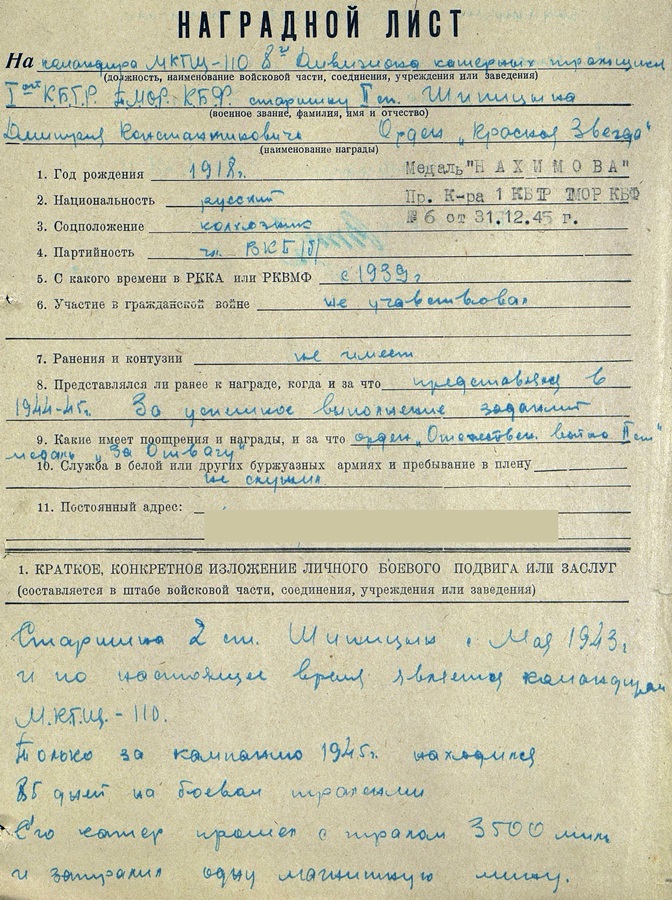 НАГРАДНОЙ ЛИСТ
На командира МКТЩ-110 8го Дивизиона катерных тральщиков
(должность, наименование войсковой части, соединения, учреждения или заведения)
КБТР. ТМОР. КБФ. старшину II ст. Шипицына
(военное звание, фамилия, имя и отчество)
Дмитрия Константиновича Орден „Красная Звезда"
(наименование награды)
1. Год рождения 1918г. Медаль "НАХИМОВА"
2. Национальность русский Пр. К-ра 1 КБТР ТМОР КБФ
3. Соцположение колхозник № 6 от 31.12.45 г.
4. Партийность чл. ВКП/б/
5. С какого времени в РККА или РКВМФ с 1939г
6. Участие в гражданской войне не учавствовал
7. Ранения и контузии не имеет
8. Представлялся ли ранее к награде, когда и за что представлялся в
1944-45г. За успешное выполнение заданий
9. Какие имеет поощрения и награды, и за что орден „Отечествен. войны II ст"
медаль „За Отвагу"
10. Служба в белой или других буржуазных армиях и пребывание в плену
не служил
11. Постоянный адрес:
1. КРАТКОЕ, КОНКРЕТНОЕ ИЗЛОЖЕНИЕ ЛИЧНОГО БОЕВОГО ПОДВИГА ИЛИ ЗАСЛУГ
(составляется в штабе войсковой части, соединения, учреждения или заведения)
Старшина 2 ст. Шипицын с Мая 1943г
и по настоящее время является командиром
М.КТЩ.-110.
Только за кампанию 1945г. находился
85 дней на боевом тралении
Его катер прошел с тралом 3500 миль
и затралил одну магнитную мину.